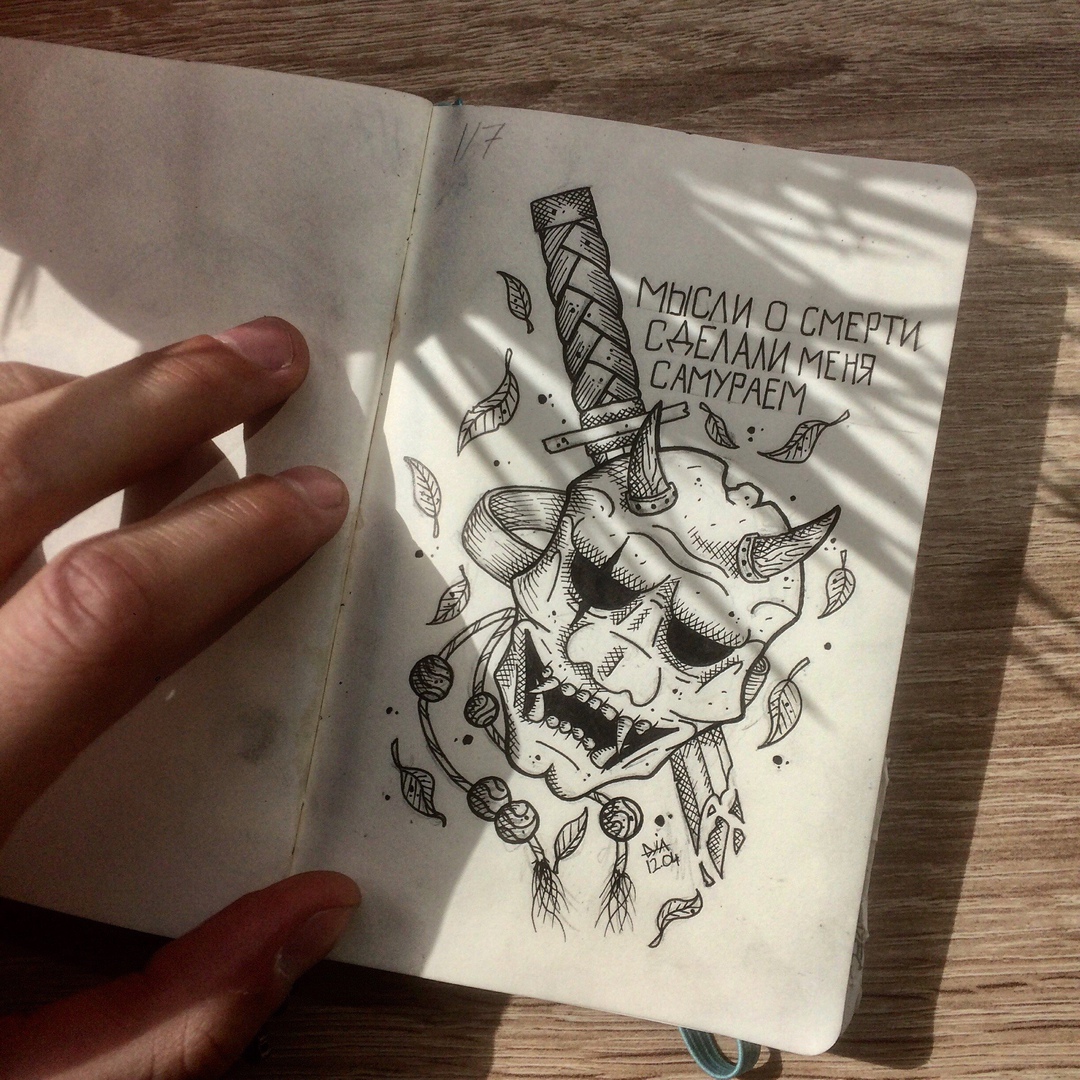 1/7
МЫСЛИ О СМЕРТИ
СДЕЛАЛИ МЕНЯ
САМУРАЕМ
12.04